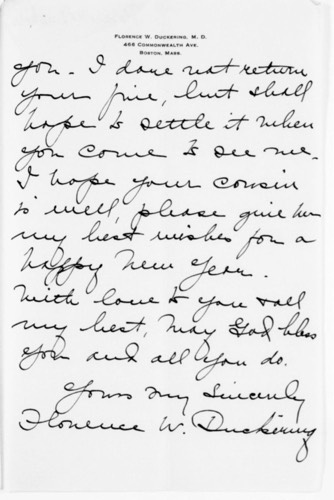 FLORENCE W. DUCKERING, M. D.
466 COMMONWEALTH AVE.
BOSTON, MASS.
you. I dare not return
your five, but shall
hope to settle it when
you come to see me.
I hope your cousin
is well, please give her
my best wishes for a
happy New Year.
With love to you & all
my best, May God bless
you and all you do.
Yours very sincerely
Florence W. Duckering